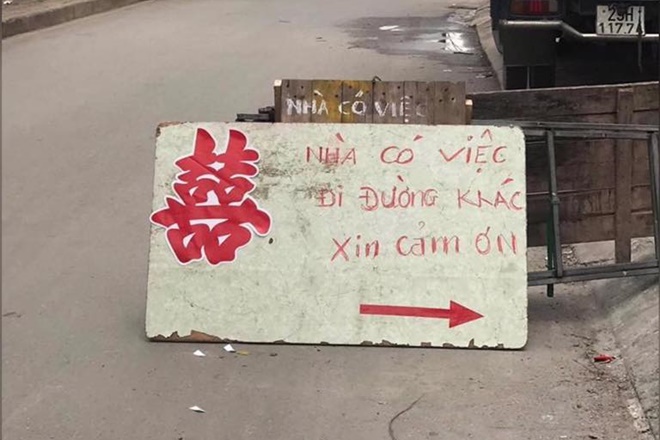 29H
117.74
NHÀ CÓ VIỆC
囍
NHÀ CÓ VIỆC
ĐI ĐƯỜNG KHÁC
Xin cảm ơn